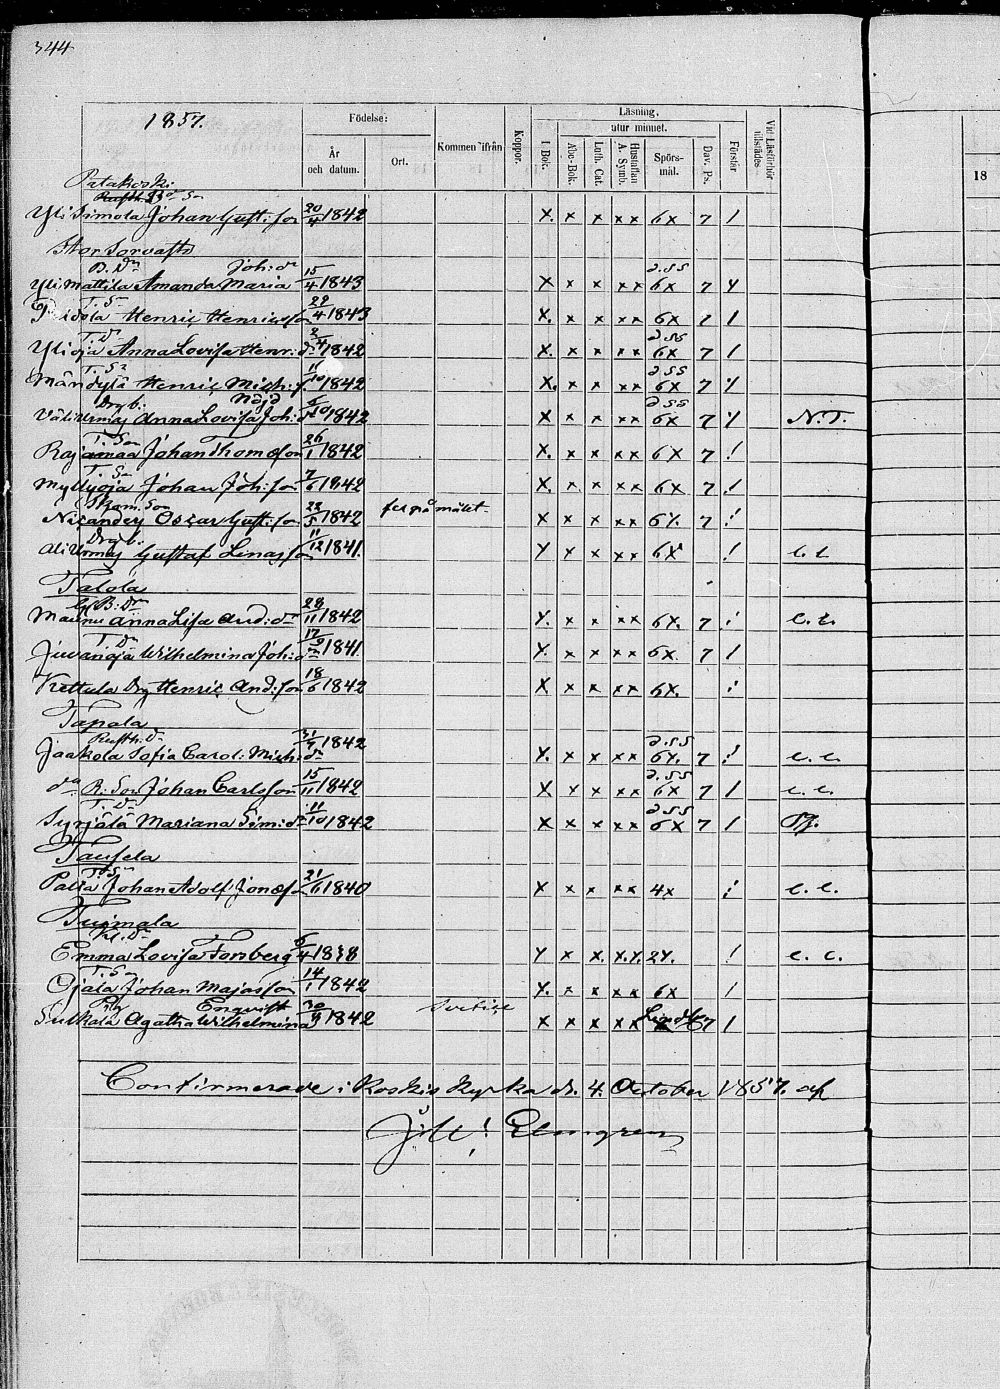 344
1857.
Födelse:
År och datum.
Ort.
Kommen ifrån
Koppor.
Läsning.
utur minnet.
I Bok.
Abc-Bok.
Luth. Cat.
Hustaflan A. Symb.
Spörsmål.
Dav. Ps.
Förstår
Vid Läsförhör tillstädes.
18
Patakoski
Yli Simola Johan Gust: son 20/4 1842 X. x x xx 6x 7 /
Stor Sorvasto
B. Dr Joh: dr
Yli Mattila Amanda Maria 15/4 1843 X x x xx 2.55 6x 7
T. Sn
Henric Henricsson 22/4 1843 X. x x xx 6x 7 /
T. Dr
Ylioja Anna Lovisa Henr: dr 1842 X. x x xx 2.55 6x 7 /
T. Sn
Mändylä Henric Mich: s. 11/10 1842 X. x x xx 2.55 6x 7
Dryb: Näjd
Väliurmas Anna Lovisa Joh: d 1842 X x x xx 2.55 6x 7 N.T.
T. Son
Rajamaa Johan Thomasson 26/1 1842 X. x x xx 6x 7 !
T. Sn
Myllyoja Johan Joh: son 7/6 1842 X. x x xx 6x 7 !
Nicander Oscar Gust: son 22/5 1842 X x x xx 6x. 7 !
Dryb:
Ali Urmas Gustaf Linasson 11/12 1841. x x x xx 6x ! c. c.
Talola
B: Dr
Maunu Anna Lisa And: dr 28/11 1842 x x xx 6x. 7 ! c. c.
T. Dr
Juvanoja Wilhelmina Joh: d 1841. x x xx 6x 7 /
Kettula Dr Henric And: son 18/6 1842 X x x xx 6x. !
Tapala
Rusth. Dr
Jaakola Sofia Carol: Mich: dr 1842 x x xx 2.55 6x. 7 ! c. c.
do R: Son Johan Carlsson 15/11 1842 X x x xx 2.55 6x 7 / c. c.
T. Dr
Syrjälä Mariana Sim: dr 11/10 1842 X x x xx 2.55 6x 7 /
T. Sn
Johan Adolf Jonass 21/6 1840 X x x xx 4x ! c. c.
Tuimala
Emma Lovisa Forsberg 6/4 1838 x x. x.x. 2x. ! c. c.
T. Sn
Ojala Johan Majasson 14/1 1842 x x xx 6x /
Enqvist
Sulkala Agatha Wilhelmina 30/9 1842 X x x xx 7 /
Confirmerade i Koskis Kyrka d. 4. October 1857. af
Elmgren